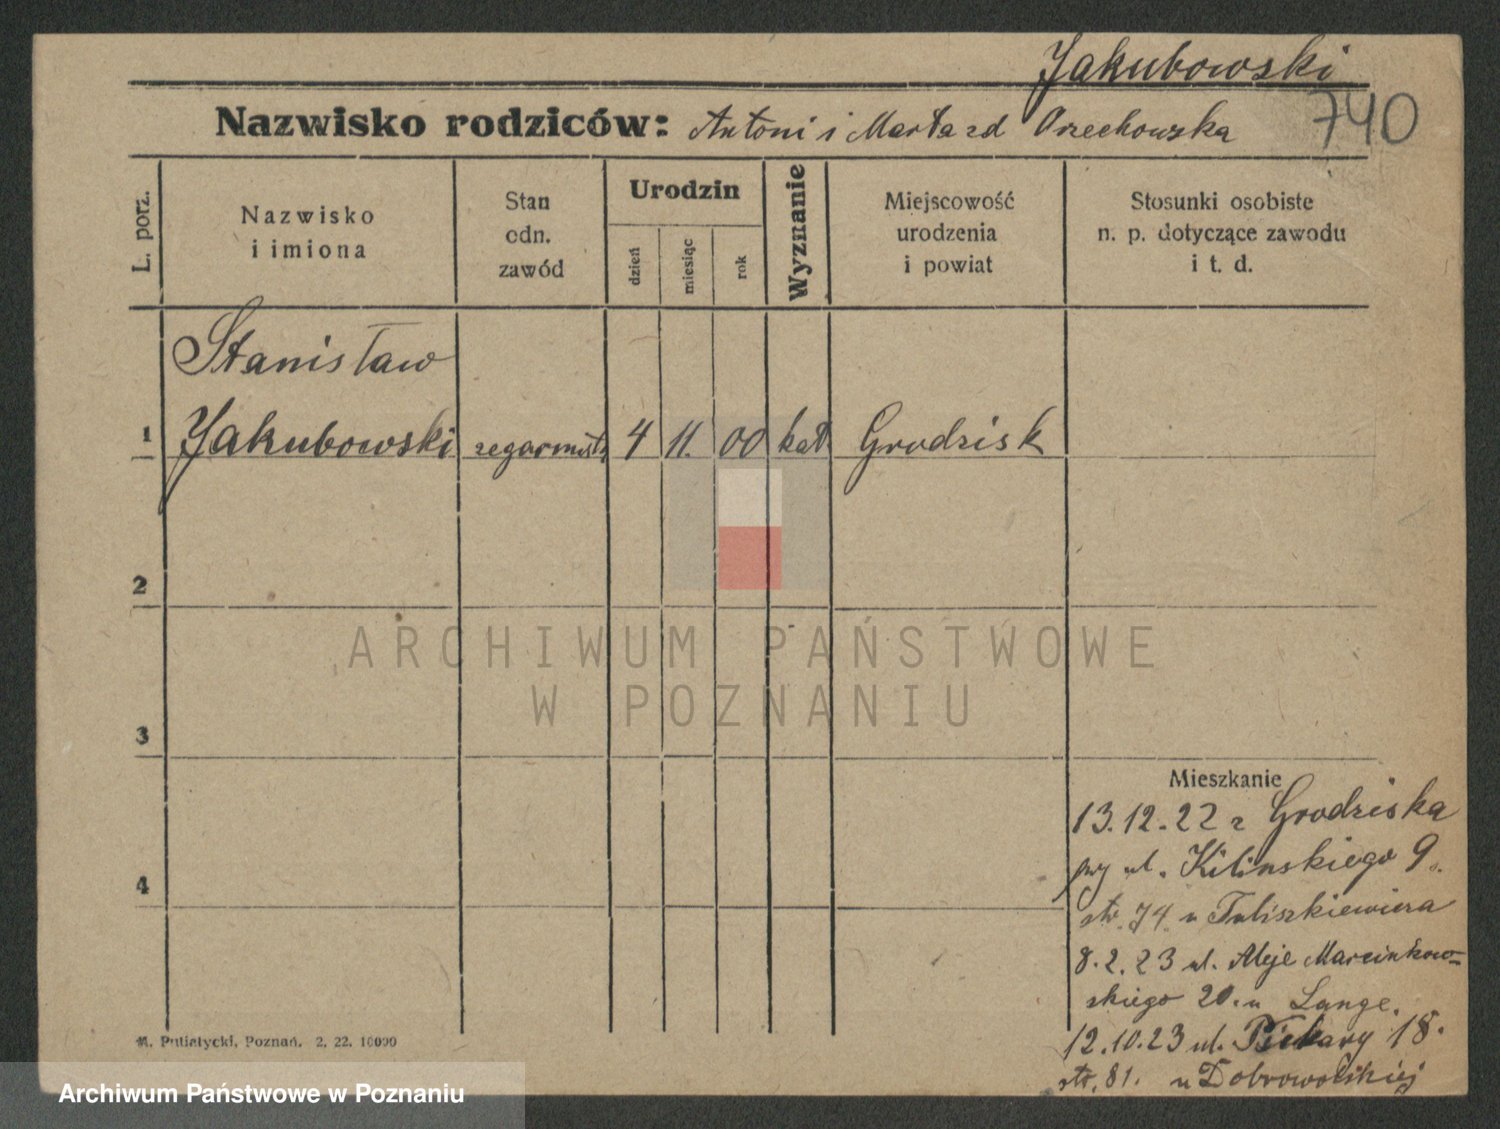 Jakubowski
Nazwisko rodziców: Antoni i Marta zd Orzechowska
740
L. porz.
Nazwisko
i imiona
Stan
odn.
zawód
Urodzin
dzień
miesiąc
rok
Wyznanie
Miejscowość
urodzenia
i powiat
Stosunki osobiste
n. p. dotyczące zawodu
i t. d.
Stanisław
1 Jakubowski zegarmistrz 4 11. 00 kat. Grodzisk
2
ARCHIWUM PAŃSTWOWE
W POZNANIU
3
Mieszkanie
13.12.22 z Grodziska
ul. Kilinskiego 9.
str. 74. u Tuliszkiewicza
4
8.2.23 ul. Aleje Marcinkow-
skiego 20. u Lange.
12.10.23 ul. Piekary 18.
str. 81. u Dobrowolskiej
M. Putiatycki, Poznań. 2. 22. 10000
Archiwum Państwowe w Poznaniu